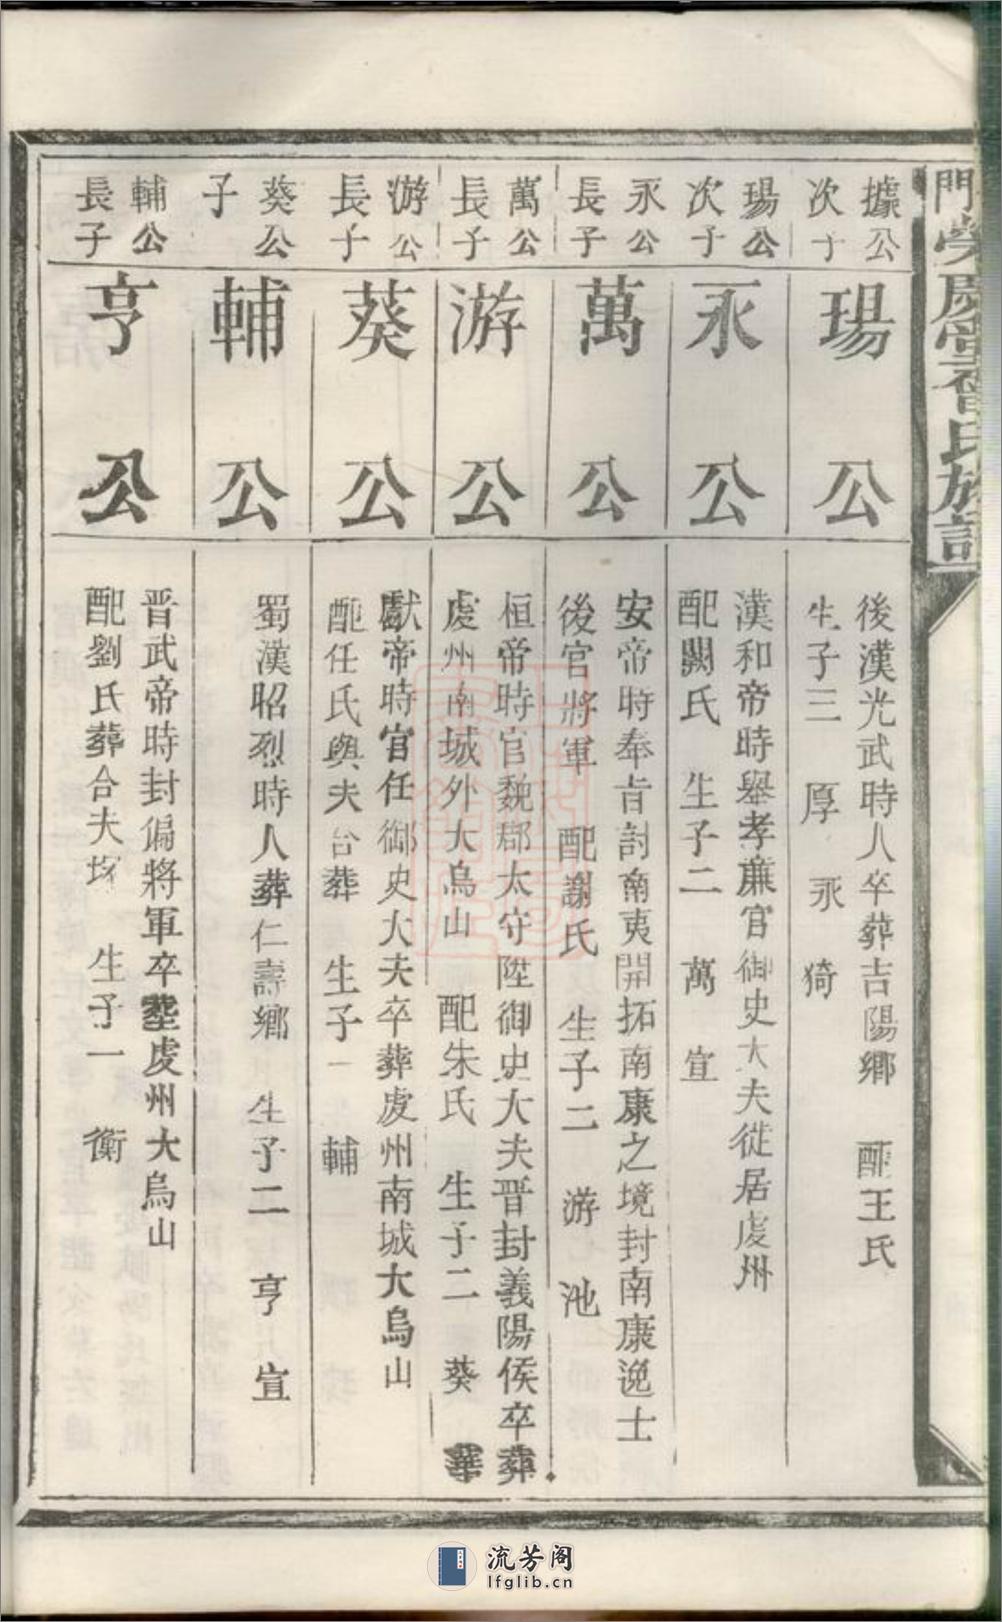 據公
次子
瑒公
後漢光武時人卒葬吉陽鄉 配王氏
生子三 厚 永 猗
瑒公
次子
永公
漢和帝時舉孝廉官御史大夫徙居虔州
配闕氏 生子二 萬 宣
永公
長子
萬公
安帝時奉旨討南夷開拓南康之境封南康逸士
後官將軍 配謝氏 生子二 游 池
萬公
長子
游公
桓帝時官魏郡太守陞御史大夫晋封義陽侯卒葬
虔州南城外大烏山 配朱氏 生子二 葵 華
游公
長子
葵公
獻帝時官任御史大夫卒葬虔州南城大烏山
配任氏與夫合葬 生子一 輔
葵公
子
輔公
蜀漢昭烈時人葬仁壽鄉 生子二 亨 宣
輔公
長子
亨公
晋武帝時封偏將軍卒塟虔州大烏山
配劉氏葬合夫塚 生子一 衡
流芳阁
lfglib.cn